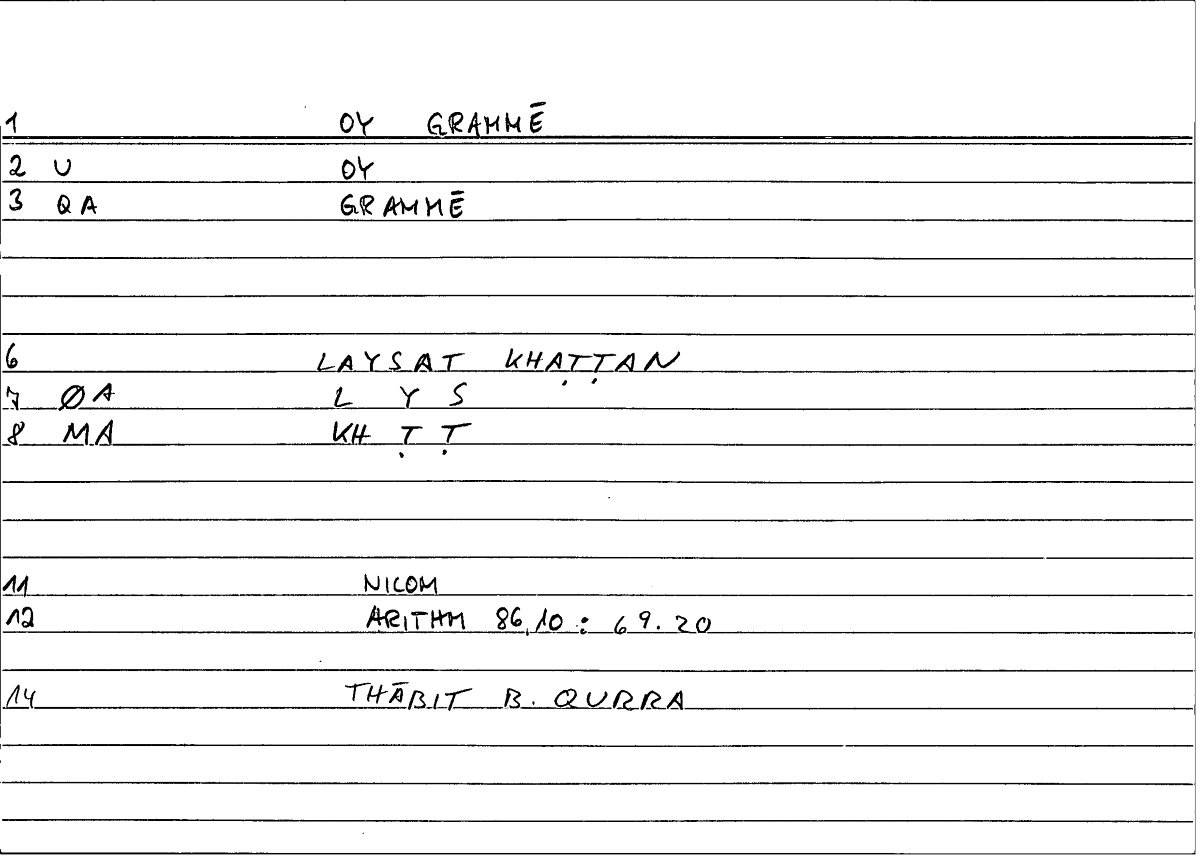 1 OY GRAMMĒ
2 U OY
3 QA GRAMMĒ
6 LAYSAT KHAṬṬAN
7 ØA L Y S
8 MA KH Ṭ Ṭ
11 NICOM
12 ARITHM 86,10 : 69.20
14 THĀBIT B. QURRA